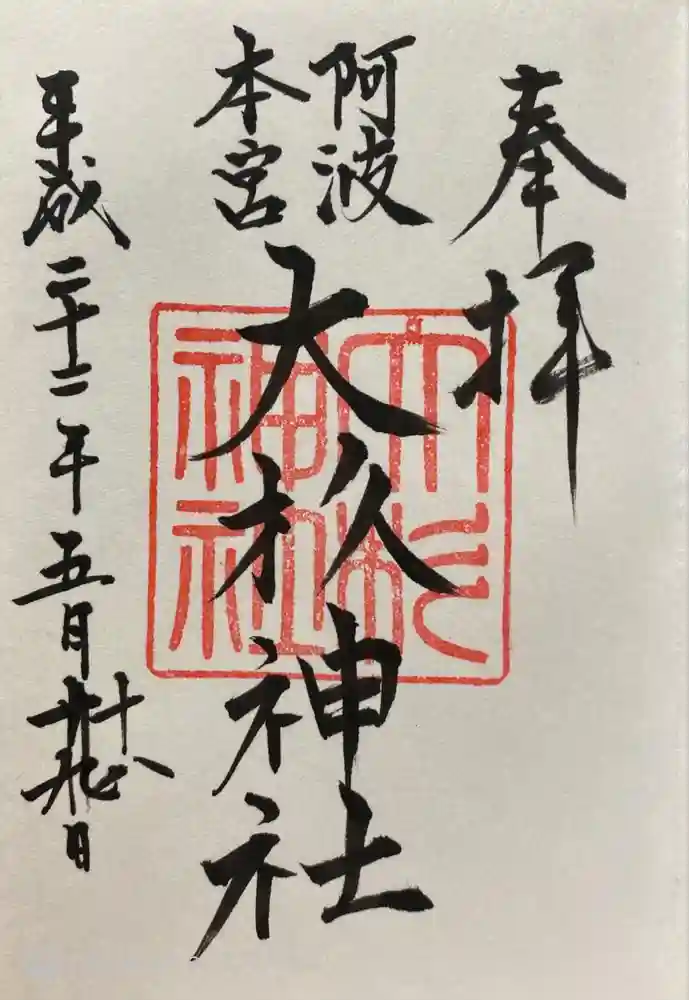 奉拝
阿波
本宮
大杦神社
平成二十二年五月十八日
大杉神社